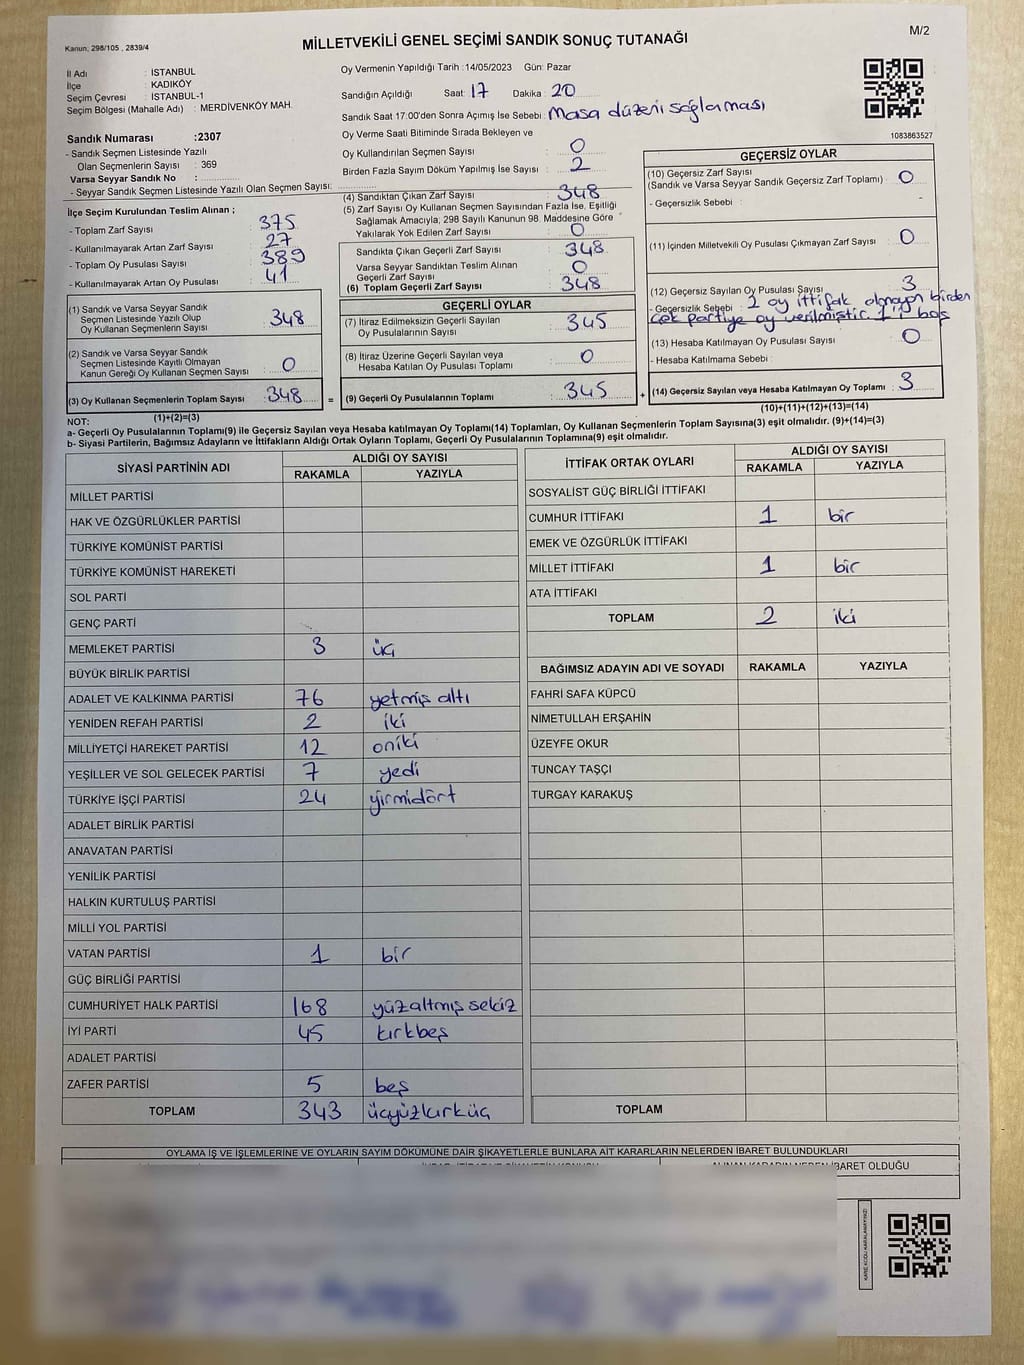 M/2
Kanun, 298/105 , 2839/4
MİLLETVEKİLİ GENEL SEÇİMİ SANDIK SONUÇ TUTANAĞI
İl Adı : İSTANBUL
İlçe : KADIKÖY
Seçim Çevresi : İSTANBUL-1
Seçim Bölgesi (Mahalle Adı) : MERDİVENKÖY MAH.
Sandık Numarası :2307
- Sandık Seçmen Listesinde Yazılı
Olan Seçmenlerin Sayısı : 369
Varsa Seyyar Sandık No :
- Seyyar Sandık Seçmen Listesinde Yazılı Olan Seçmen Sayısı:
Oy Vermenin Yapıldığı Tarih :14/05/2023 Gün: Pazar
Sandığın Açıldığı Saat: 17 Dakika : 20
Sandık Saat 17:00'den Sonra Açımış İse Sebebi : Masa düzeni sağlaması
Oy Verme Saati Bitiminde Sırada Bekleyen ve
Oy Kullandırılan Seçmen Sayısı : 0
Birden Fazla Sayım Döküm Yapılmış İse Sayısı : 2
1083863527
İlçe Seçim Kurulundan Teslim Alınan ;
- Toplam Zarf Sayısı : 375
- Kullanılmayarak Artan Zarf Sayısı : 27
- Toplam Oy Pusulası Sayısı : 389
- Kullanılmayarak Artan Oy Pusulası : 41
(1) Sandık ve Varsa Seyyar Sandık
Seçmen Listesinde Yazılı Olup
Oy Kullanan Seçmenlerin Sayısı : 348
(2) Sandık ve Varsa Seyyar Sandık
Seçmen Listesinde Kayıtlı Olmayan
Kanun Gereği Oy Kullanan Seçmen Sayısı : 0
(3) Oy Kullanan Seçmenlerin Toplam Sayısı : 348
(1)+(2)=(3)
(4) Sandıktan Çıkan Zarf Sayısı : 348
(5) Zarf Sayısı Oy Kullanan Seçmen Sayısından Fazla İse, Eşitliği
Sağlamak Amacıyla, 298 Sayılı Kanunun 98. Maddesine Göre
Yakılarak Yok Edilen Zarf Sayısı : 0
Sandıkta Çıkan Geçerli Zarf Sayısı : 348
Varsa Seyyar Sandıktan Teslim Alınan
Geçerli Zarf Sayısı : 0
(6) Toplam Geçerli Zarf Sayısı : 348
GEÇERLİ OYLAR
(7) İtiraz Edilmeksizin Geçerli Sayılan
Oy Pusulalarının Sayısı : 345
(8) İtiraz Üzerine Geçerli Sayılan veya
Hesaba Katılan Oy Pusulası Toplamı : 0
= (9) Geçerli Oy Pusulalarının Toplamı : 345 +
GEÇERSİZ OYLAR
(10) Geçersiz Zarf Sayısı
(Sandık ve Varsa Seyyar Sandık Geçersiz Zarf Toplamı) : 0
- Geçersizlik Sebebi : -
(11) İçinden Milletvekili Oy Pusulası Çıkmayan Zarf Sayısı : 0
(12) Geçersiz Sayılan Oy Pusulası Sayısı : 3
- Geçersizlik Sebebi : 2 oy ittifak olmayan birden
çok partiye oy verilmiştir. 1'i boş
(13) Hesaba Katılmayan Oy Pusulası Sayısı : 0
- Hesaba Katılmama Sebebi :
(14) Geçersiz Sayılan veya Hesaba Katılmayan Oy Toplamı : 3
(10)+(11)+(12)+(13)=(14)
NOT:
a- Geçerli Oy Pusulalarının Toplamı(9) ile Geçersiz Sayılan veya Hesaba katılmayan Oy Toplamı(14) Toplamları, Oy Kullanan Seçmenlerin Toplam Sayısına(3) eşit olmalıdır. (9)+(14)=(3)
b- Siyasi Partilerin, Bağımsız Adayların ve İttifakların Aldığı Ortak Oyların Toplamı, Geçerli Oy Pusulalarının Toplamına(9) eşit olmalıdır.
SİYASİ PARTİNİN ADI ALDIĞI OY SAYISI
RAKAMLA YAZIYLA
MİLLET PARTİSİ
HAK VE ÖZGÜRLÜKLER PARTİSİ
TÜRKİYE KOMÜNİST PARTİSİ
TÜRKİYE KOMÜNİST HAREKETİ
SOL PARTİ
GENÇ PARTİ
MEMLEKET PARTİSİ 3 üç
BÜYÜK BİRLİK PARTİSİ
ADALET VE KALKINMA PARTİSİ 76 yetmiş altı
YENİDEN REFAH PARTİSİ 2 iki
MİLLİYETÇİ HAREKET PARTİSİ 12 oniki
YEŞİLLER VE SOL GELECEK PARTİSİ 7 yedi
TÜRKİYE İŞÇİ PARTİSİ 24 yirmidört
ADALET BİRLİK PARTİSİ
ANAVATAN PARTİSİ
YENİLİK PARTİSİ
HALKIN KURTULUŞ PARTİSİ
MİLLİ YOL PARTİSİ
VATAN PARTİSİ 1 bir
GÜÇ BİRLİĞİ PARTİSİ
CUMHURİYET HALK PARTİSİ 168 yüzaltmış sekiz
İYİ PARTİ 45 kırkbeş
ADALET PARTİSİ
ZAFER PARTİSİ 5 beş
TOPLAM 343 üçyüzkırküç
İTTİFAK ORTAK OYLARI ALDIĞI OY SAYISI
RAKAMLA YAZIYLA
SOSYALİST GÜÇ BİRLİĞİ İTTİFAKI
CUMHUR İTTİFAKI 1 bir
EMEK VE ÖZGÜRLÜK İTTİFAKI
MİLLET İTTİFAKI 1 bir
ATA İTTİFAKI
TOPLAM 2 iki
BAĞIMSIZ ADAYIN ADI VE SOYADI RAKAMLA YAZIYLA
FAHRİ SAFA KÜPCÜ
NİMETULLAH ERŞAHİN
ÜZEYFE OKUR
TUNCAY TAŞÇI
TURGAY KARAKUŞ
TOPLAM
OYLAMA İŞ VE İŞLEMLERİNE VE OYLARIN SAYIM DÖKÜMÜNE DAİR ŞİKAYETLERLE BUNLARA AİT KARARLARIN NELERDEN İBARET BULUNDUKLARI
İBARET OLDUĞU
KARE KODU KARALAMAYINIZ!